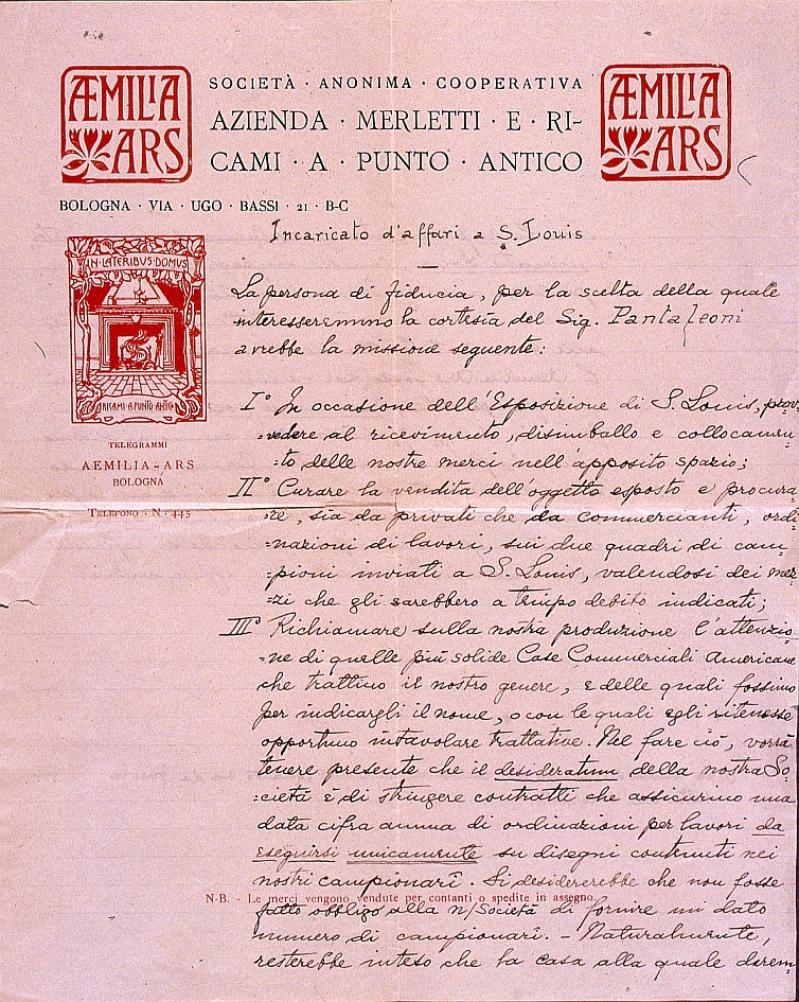 ÆMILIA
ARS
SOCIETÀ · ANONIMA · COOPERATIVA
AZIENDA · MERLETTI · E · RI-
CAMI · A · PUNTO · ANTICO
ÆMILIA
ARS
BOLOGNA · VIA · UGO · BASSI · 21 · B-C
Incaricato d'affari a S. Louis
IN·LATERIBVS·DOMVS
RICAMI·A·PVNTO·ANTICO
TELEGRAMMI
AEMILIA-ARS
BOLOGNA
TELEFONO · N · 445
La persona di fiducia, per la scelta della quale
interesseremmo la cortesia del Sig. Pantaleoni
avrebbe la missione seguente:
I° In occasione dell'Esposizione di S. Louis, prov
=vedere al ricevimento, disimballo e collocamen
=to delle nostre merci nell'apposito spazio;
II° Curare la vendita dell'oggetto esposto e procura
=re, sia da privati che da commercianti, ordi
=nazioni di lavori, sui due quadri di cam
=pioni inviati a S. Louis, valendosi dei mez
=zi che gli sarebbero a tempo debito indicati;
III° Richiamare sulla nostra produzione l'attenzio
=ne di quelle più solide Case Commerciali Americane
che trattino il nostro genere, e delle quali fossimo
per indicargli il nome, o con le quali egli ritenesse
opportuno intavolare trattative. Nel fare ciò, vorrà
tenere presente che il desideratum della nostra So
=cietà è di stringere contratti che assicurino una
data cifra annua di ordinazioni per lavori da
eseguirsi unicamente su disegni contenuti nei
nostri campionarî. Si desidererebbe che non fosse
N-B. - Le merci vengono vendute per contanti o spedite in assegno.
fatto obbligo alla n/Società di fornire un dato
numero di campionarî. - Naturalmente,
resterebbe inteso che la casa alla quale darem